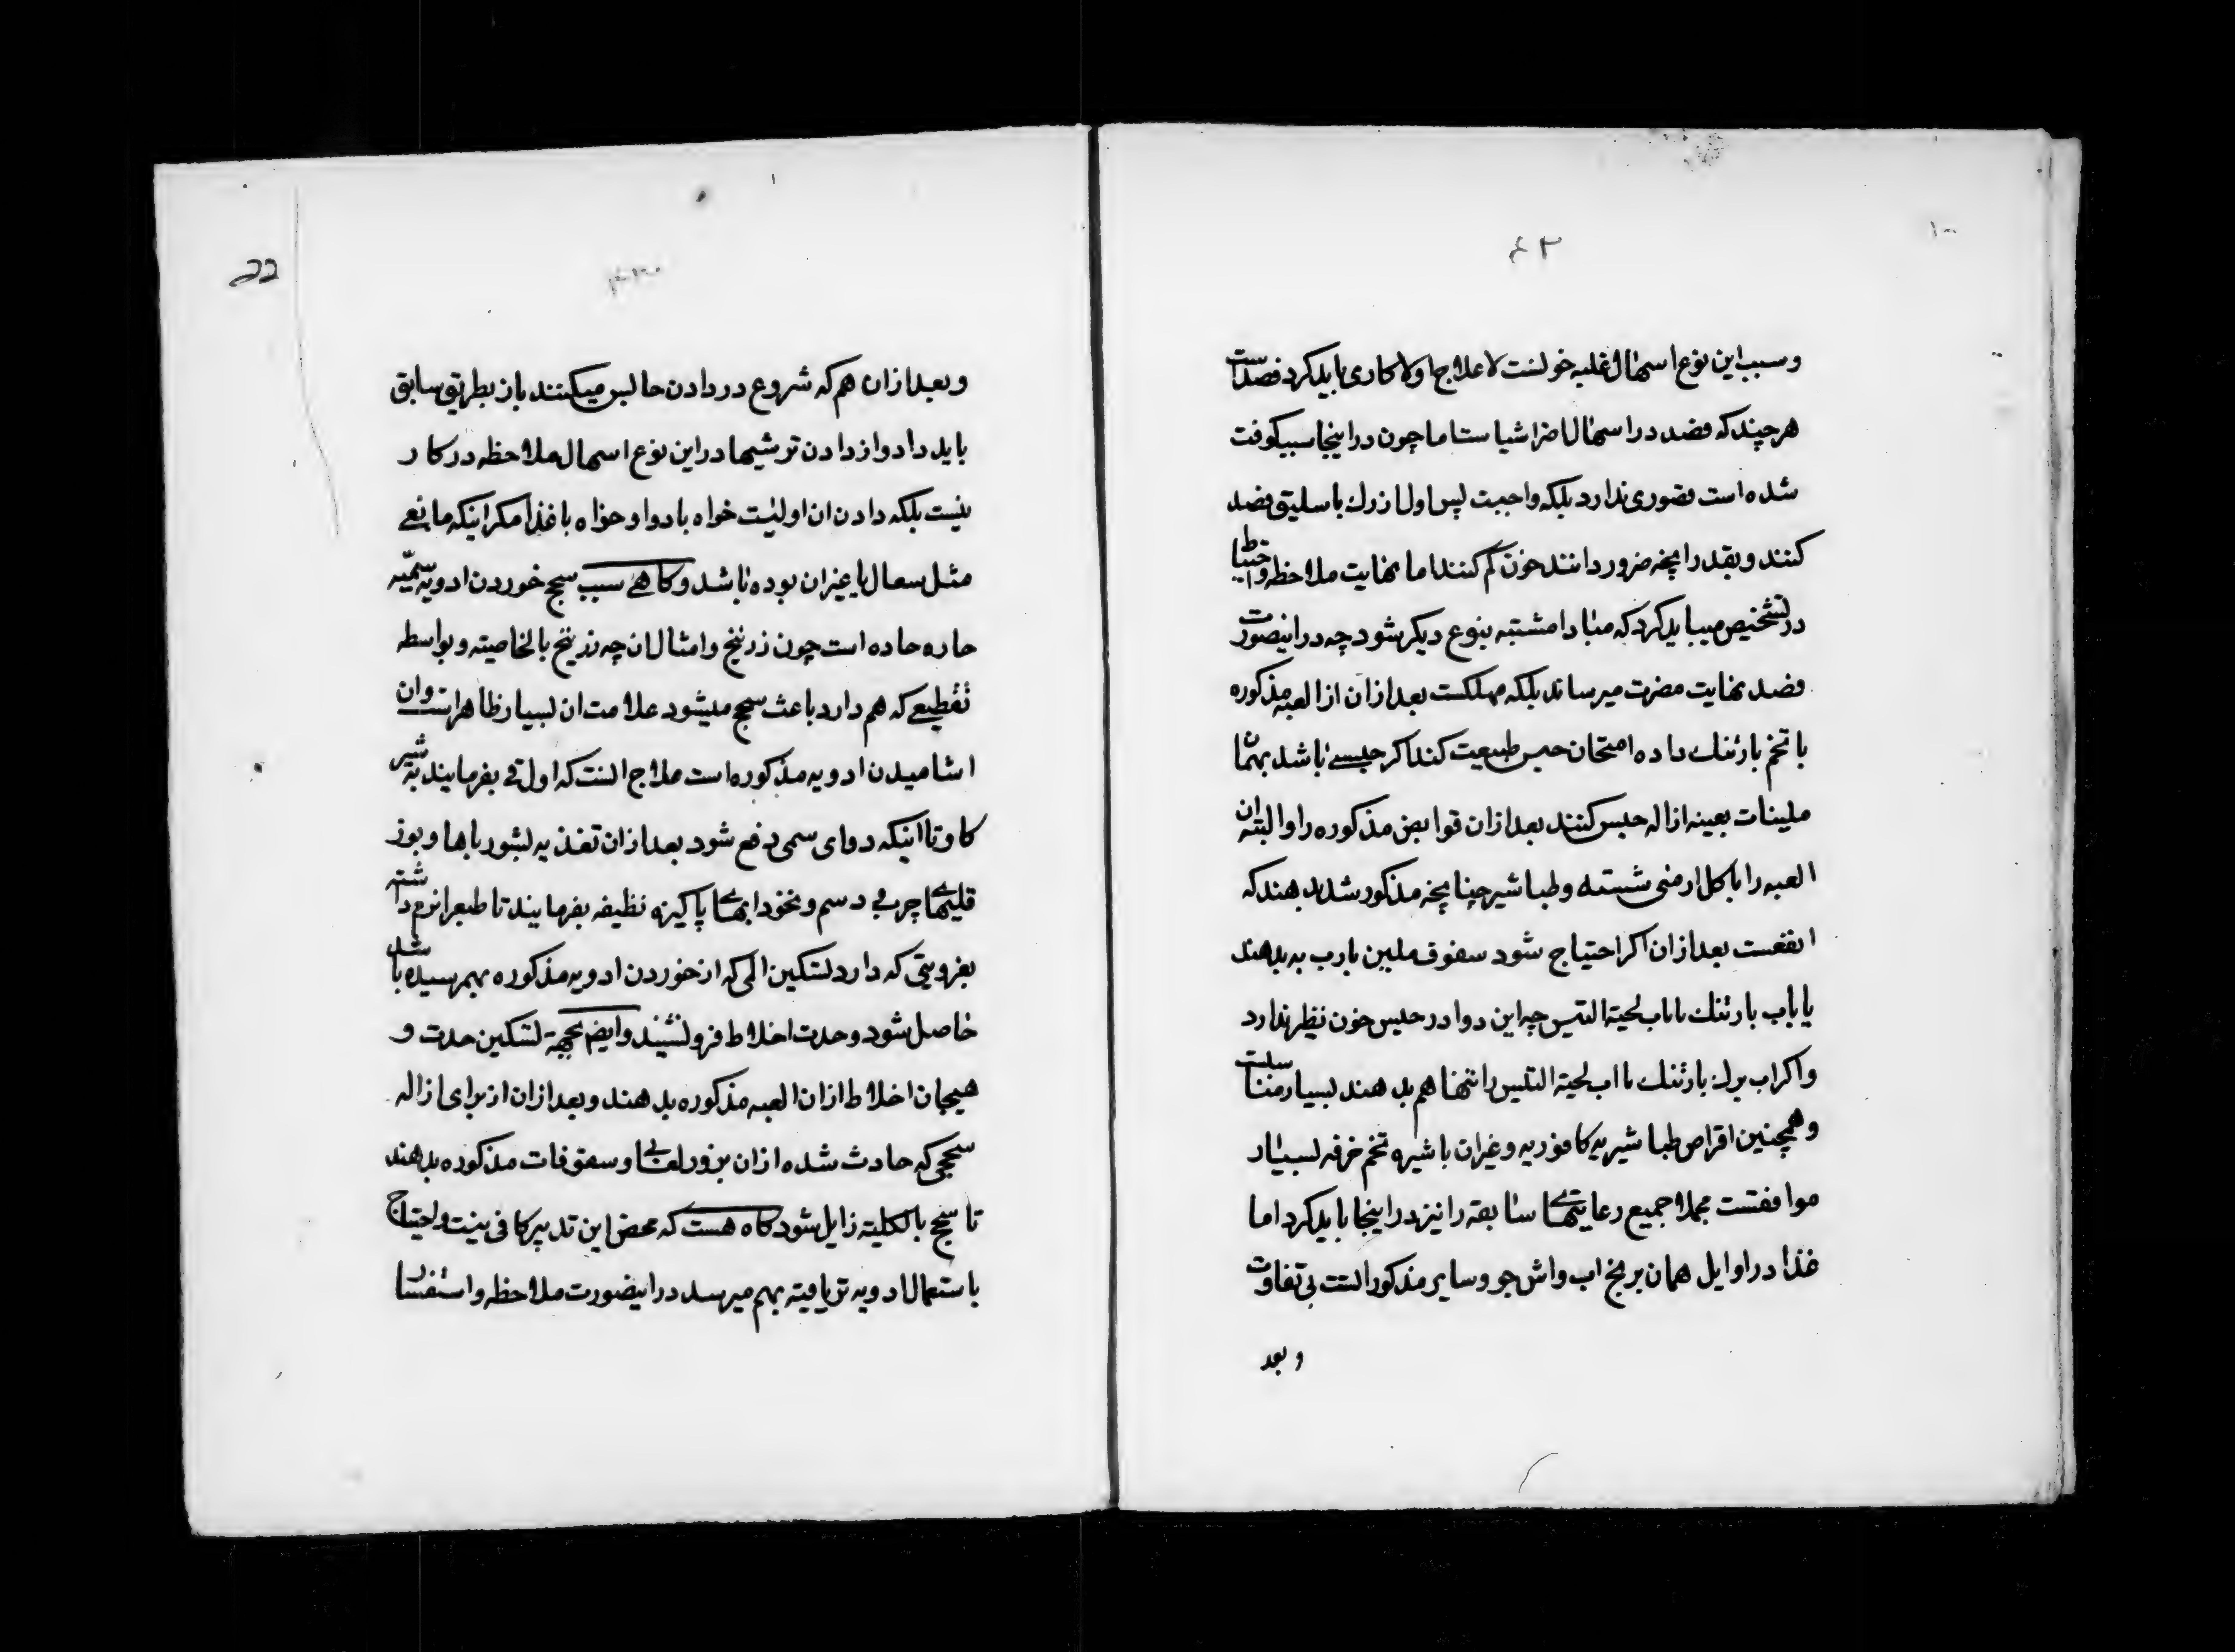 ۱۰۰
۴۳
و سبب این نوع اسهال غلبه خونست لا علاج اولا کاری باید کرد فصدست
هر چند که فصد در اسهال اضر اشیاست اما چون در اینجا سبب کوفت
شده است قصوری ندارد بلکه واجبست پس اول از رک باسلیق فصد
کنند و بقدر انچه ضرور دانند خون کم کنند اما نهایت ملاحظه و احتیاط
در تشخیص میباید کرد که مبادا مشتبه بنوع دیکر شود چه در اینصورت
فصد نهایت مضرت میرساند بلکه مهلکست بعد از ان از العبه مذکوره
با تخم بارتنك داده امتحان حبس طبیعت کند اکر حبسی باشد بهمان
ملینات بعینه ازاله حبس کنند بعد از ان قوابض مذکوره را و البته ان
العبه را با کل ارمنی شسته و طباشیر چنانچه مذکور شد بدهند که
انفعست بعد از ان اکر احتیاج شود سفوف ملین بارب به بدهند
یا باب بارتنك یا باب لحیة التیس چه این دوا در حبس خون نظیر ندارد
و اکر اب برك بارتنك یا اب لحیة التیس را تنها هم بدهند بسیار مناسبست
و همچنین اقراص طباشیریه کافوریه و غیر ان با شیره تخم خرفه بسیار
موافقست مجملا جمیع رعایتهای سابقه را نیز در اینجا باید کرد اما
غذا در اوایل همان برنج اب و اش جو و سایر مذکور الست بی تفاوت
و بعد
و بعد از ان هم که شروع در دادن حابس میکنند باز بطریق سابق
باید داد و از دادن ترشیها در این نوع اسهال ملاحظه در کار
نیست بلکه دادن ان اولیست خواه با دوا و خواه با غذا مکر اینکه مانعی
مثل سعال یا غیر ان بوده باشد و کاهی سبب سحج خوردن ادویه سمّیه
حاره حاده است چون زرنیخ و امثال ان چه زرنیخ بالخاصیته و بواسطه
تقطیعی که هم دارد باعث سحج میشود علامت ان بسیار ظاهر است و ان
اشامیدن ادویه مذکوره است علاج انست که اول قی بفرمایند به شیر
کاو تا اینکه دوای سمی دفع شود بعد از ان تغذیه بشورباها و بوز
قلیهای چربی دسم و نخود ابهای پاکیزه نظیفه بفرمایند تا طبع را نرم داشته
بغرویتی که دارد تسکین المی که از خوردن ادویه مذکوره بهم رسیده باشد
حاصل شود و حدت اخلاط فرو نشیند و ایضم بجهة تسکین حدت و
هیجان اخلاط از ان العبه مذکوره بدهند و بعد از ان از برای ازاله
سحجی که حادث شده از ان بزور لعابی و سفوفات مذکوره بدهند
تا سحج بالکلیته زایل شود کاه هست که محض این تدبیر کافی نیست و احتیاج
باستعمال ادویه تریاقیته بهم میرسد در اینصورت ملاحظه و استفسار